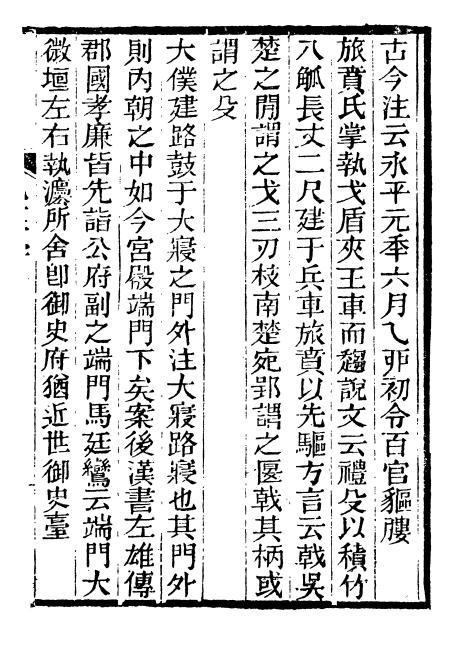 古今注云永平元秊六月乙夘初令百官貙膢
旅賁氏掌執戈盾夾王車而趨說文云禮殳以積竹
八觚長丈二尺建于兵車旅賁以先驅方言云戟吳
楚之閒謂之戈三刃枝南楚宛郢謂之匽戟其柄或
謂之殳
大僕建路鼓于大寢之門外注大寢路寢也其門外
則內朝之中如今宮殿端門下矣案後漢書左雄傳
郡國孝廉皆先詣公府副之端門馬廷鸞云端門大
微垣左右執灋所舍卽御史府猶近世御史臺